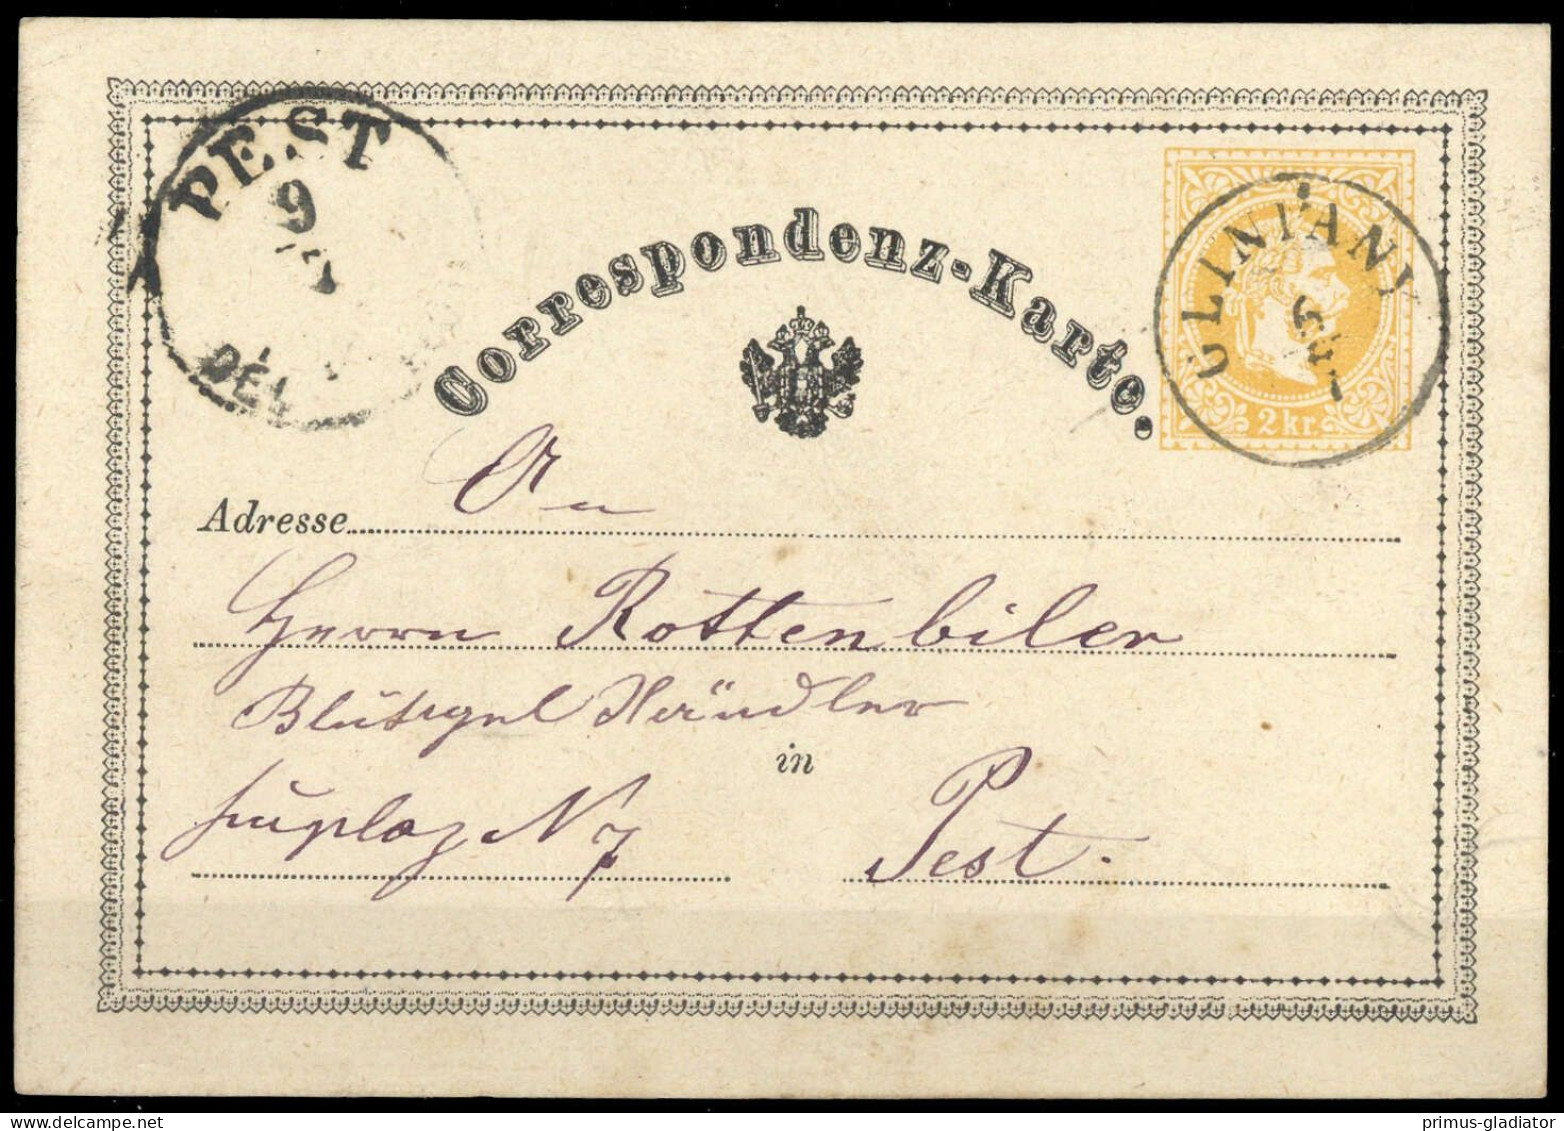 PEST
9
DÉL
Correspondenz-Karte.
ULINYANY
2 kr.
An
Adresse
Herrn Rottenbiler
Blutegel Händler
in
N 7 Pest.
www.delcampe.net
primus-gladiator